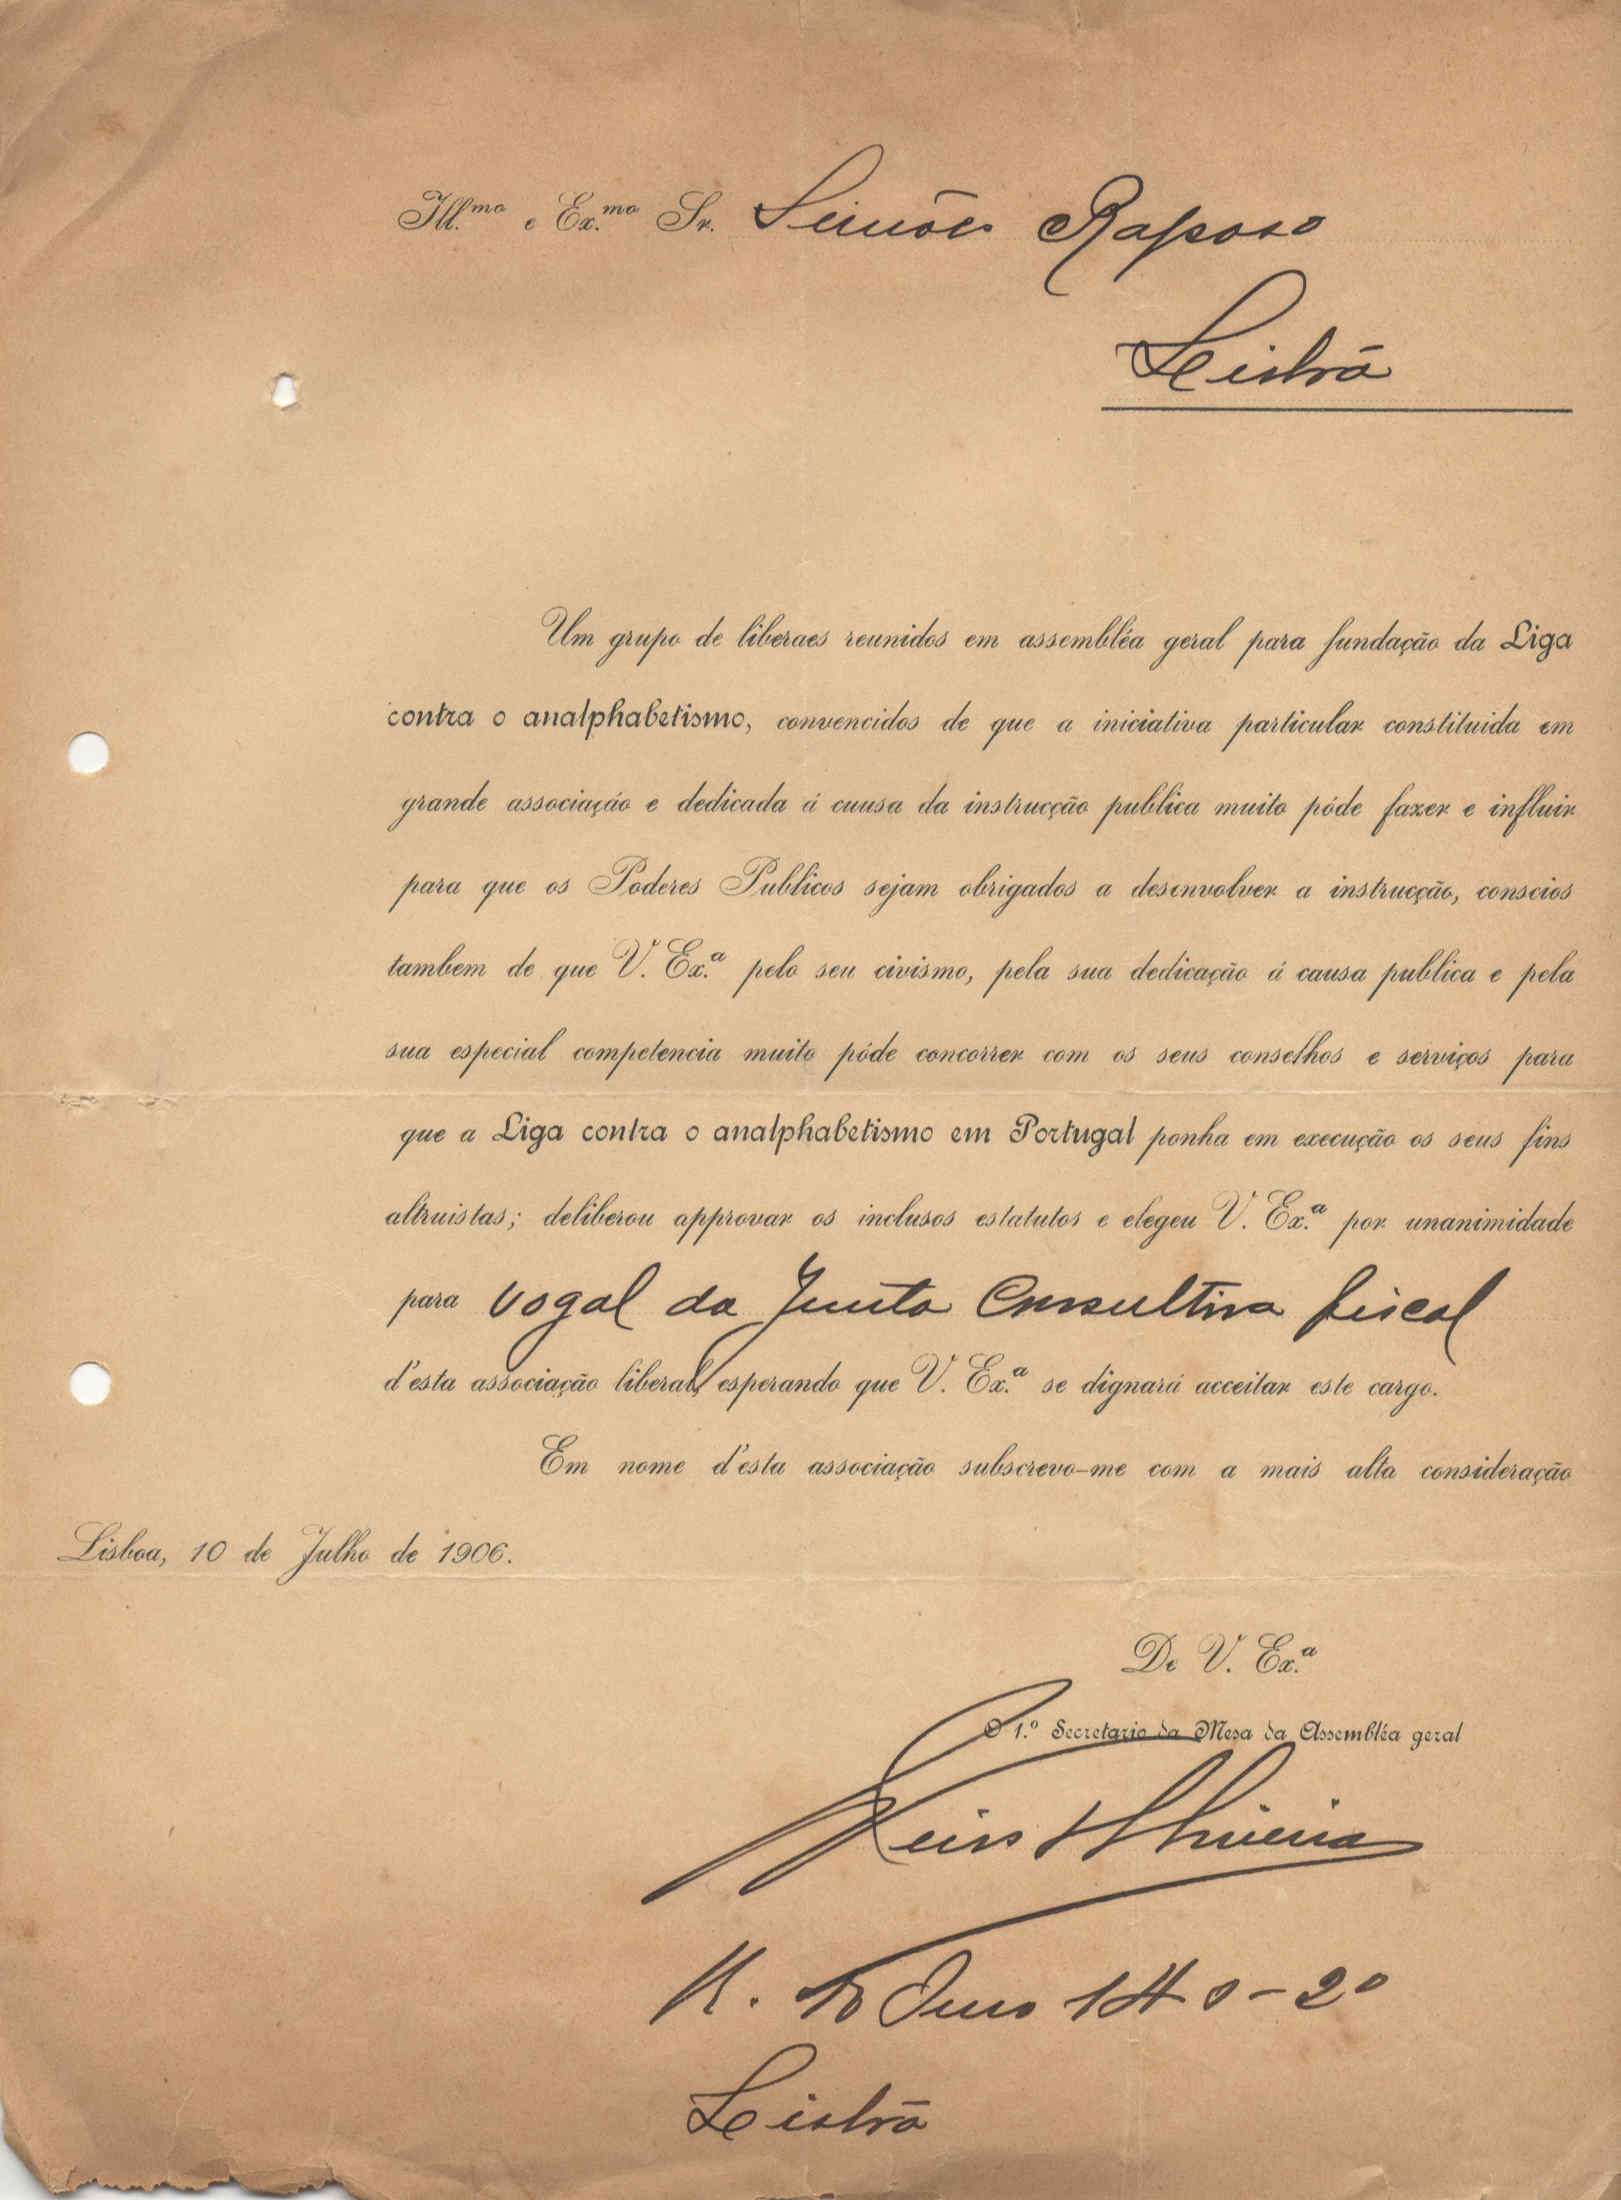 Ill.mo e Ex.mo Sr. Simões Raposo
Lisbôa
Um grupo de liberaes reunidos em assembléa geral para fundação da Liga
contra o analphabetismo, convencidos de que a iniciativa particular constituida em
grande associação e dedicada á causa da instrucção publica muito póde fazer e influir
para que os Poderes Publicos sejam obrigados a desenvolver a instrucção, conscios
tambem de que V. Ex.a pelo seu civismo, pela sua dedicação á causa publica e pela
sua especial competencia muito póde concorrer com os seus conselhos e serviços para
que a Liga contra o analphabetismo em Portugal ponha em execução os seus fins
altruistas; deliberou approvar os inclusos estatutos e elegeu V. Ex.a por unanimidade
para vogal da Junta Consultiva fiscal
d'esta associação liberal, esperando que V. Ex.a se dignará acceitar este cargo.
Em nome d'esta associação subscrevo-me com a mais alta consideração
Lisboa, 10 de Julho de 1906.
De V. Ex.a
O 1.º Secretario da Mesa da Assembléa geral
R. Ouro 140-2º
Lisbôa